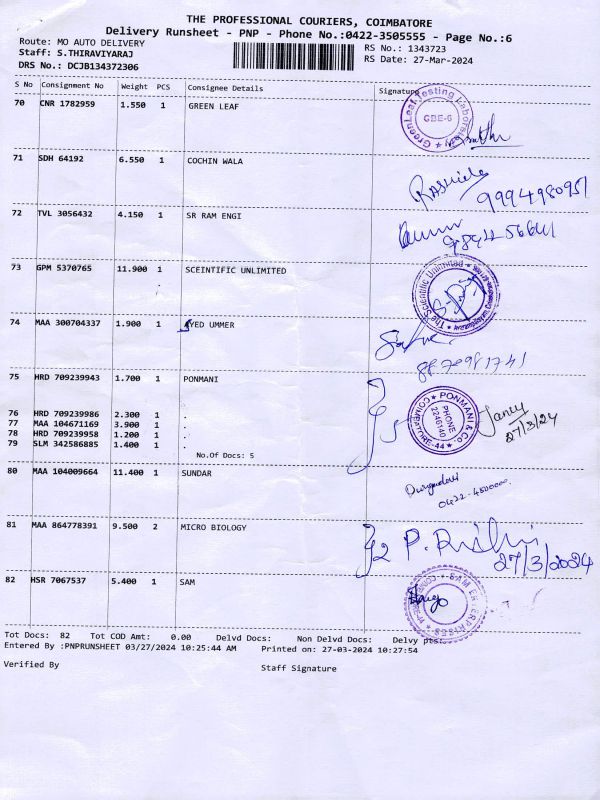 THE PROFESSIONAL COURIERS, COIMBATORE
Delivery Runsheet - PNP - Phone No.:0422-3505555 - Page No.:6
Route: MO AUTO DELIVERY RS No.: 1343723
Staff: S.THIRAVIYARAJ RS Date: 27-Mar-2024
DRS No.: DCJB134372306
S No Consignment No Weight PCS Consignee Details Signature
70 CNR 1782959 1.550 1 GREEN LEAF
GreenLeaf Testing Laboratory
GBE-6
71 SDH 64192 6.550 1 COCHIN WALA
9994980951
72 TVL 3056432 4.150 1 SR RAM ENGI
73 GPM 5370765 11.900 1 SCEINTIFIC UNLIMITED
The Scientific Unlimited
74 MAA 300704337 1.900 1 SYED UMMER
8870981741
75 HRD 709239943 1.700 1 PONMANI
76 HRD 709239986 2.300 1 .
77 MAA 104671169 3.900 1 .
78 HRD 709239958 1.200 1 .
79 SLM 342586885 1.400 1 .
No.Of Docs: 5
5
PONMANI & Co.
PHONE
2246140
COIMBATORE-44
27/3/24
80 MAA 104009664 11.400 1 SUNDAR
0422-4500000
81 MAA 864778391 9.500 2 MICRO BIOLOGY
2 27/3/2024
82 HSR 7067537 5.400 1 SAM
SAM ENTERPRISES
Tot Docs: 82 Tot COD Amt: 0.00 Delvd Docs: Non Delvd Docs: Delvy pts:
Entered By :PNPRUNSHEET 03/27/2024 10:25:44 AM Printed on: 27-03-2024 10:27:54
Verified By Staff Signature